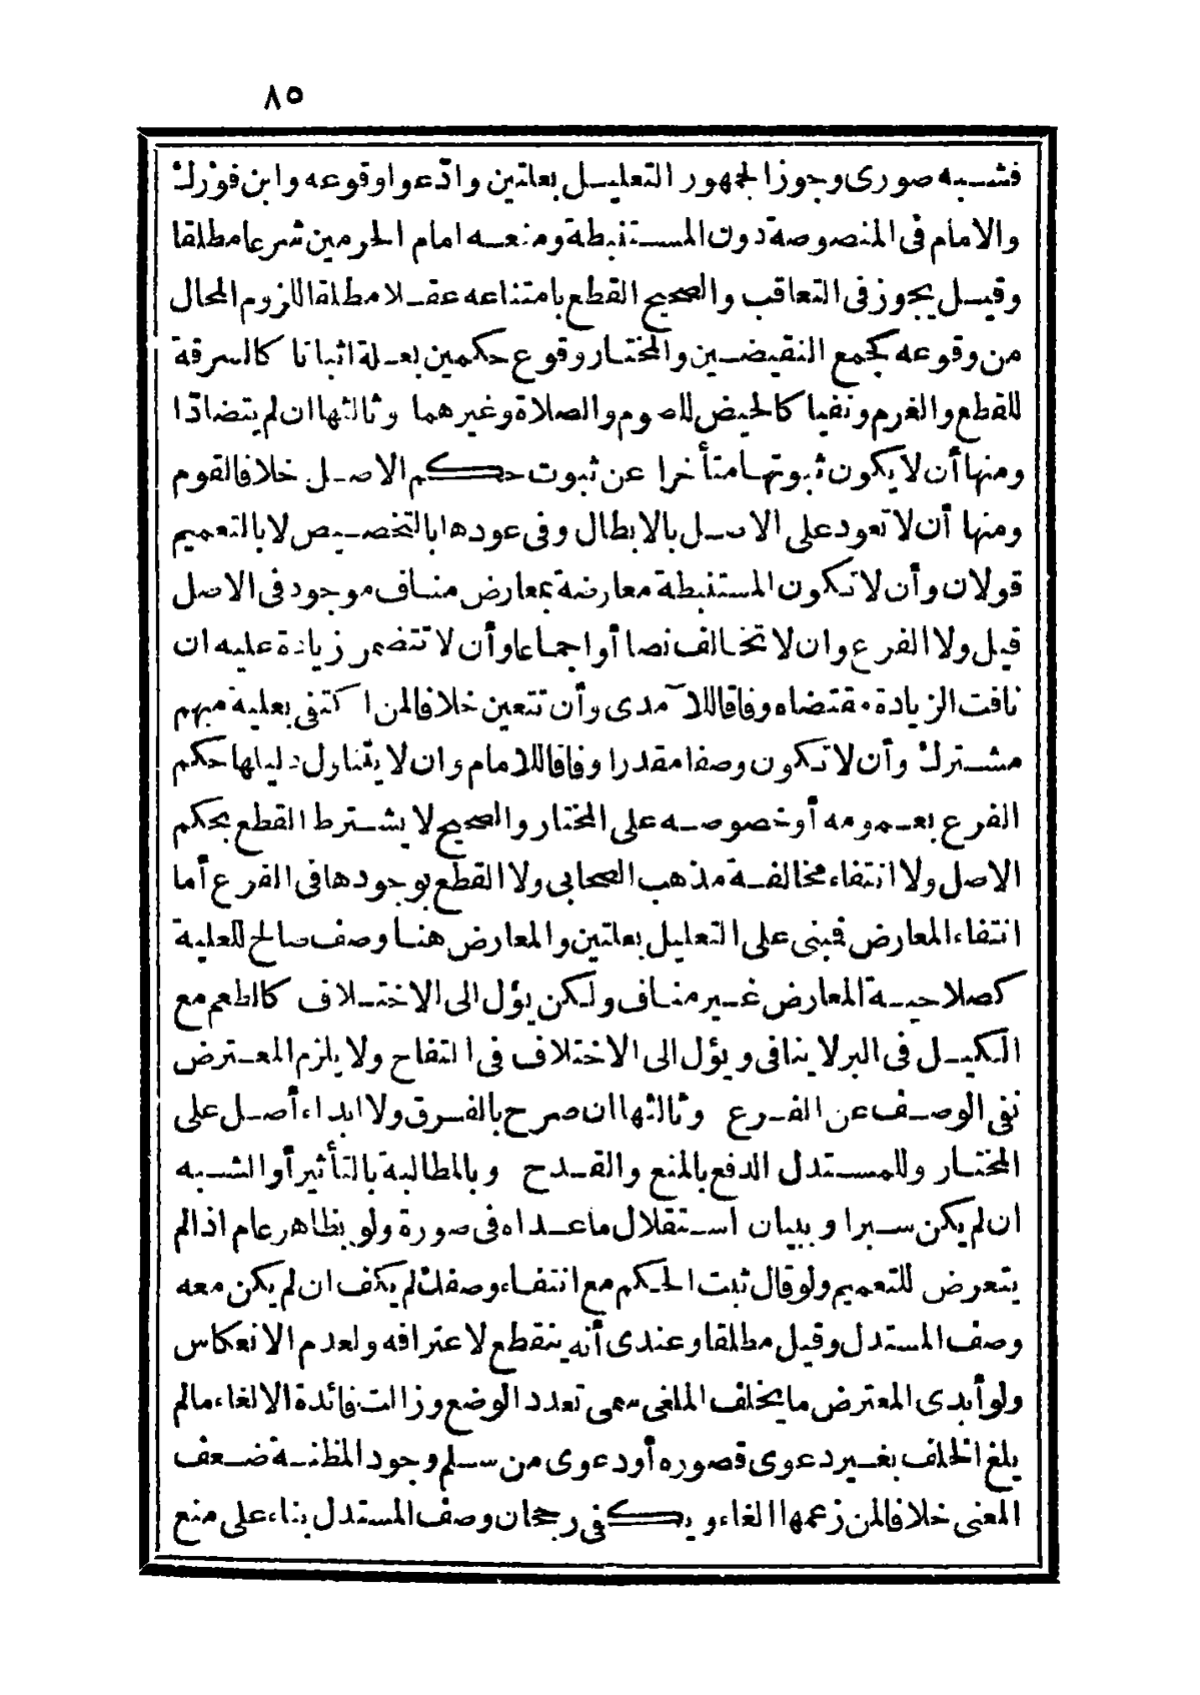 ٨٥
فشبه صورى وجوز الجهور التعليل بعلتين وادّعوا وقوعه وابن فورك
والامام فى المنصوصة دون المستنبطة ومنعه امام الحرمين شرعا مطلقا
وقيل يجوز فى التعاقب والصحيح القطع بامتناعه عقلا مطلقا للزوم المحال
من وقوعه كجمع النقيضين والمختار وقوع حكمين بعلة اثباتا كالسرقة
للقطع والغرم ونفيا كالحيض للصوم والصلاة وغيرهما وثالثها ان لم يتضادّا
ومنها أن لا يكون ثبوتها متأخرا عن ثبوت حكم الاصل خلافا لقوم
ومنها أن لا تعود على الاصل بالابطال وفى عودها بالتخصيص لا بالتعميم
قولان وأن لا تكون المستنبطة معارضة بمعارض مناف موجود فى الاصل
قيل ولا الفرع وان لا تخالف نصا أو اجماعا وأن لا تتضمن زيادة عليه ان
نافت الزيادة مقتضاه وفاقا للآمدى وأن تتعين خلافا لمن اكتفى بعلية مبهم
مشترك وأن لا تكون وصفا مقدرا وفاقا للامام وان لا يتناول دليلها حكم
الفرع بعمومه أو خصوصه على المختار والصحيح لا يشترط القطع بحكم
الاصل ولا انتفاء مخالفة مذهب الصحابى ولا القطع بوجودها فى الفرع أما
انتفاء المعارض فمبنى على التعليل بعلتين والمعارض هنا وصف صالح للعلية
كصلاحية المعارض غير مناف ولكن يؤل الى الاختلاف كالطعم مع
الكيل فى البر لا ينافى ويؤل الى الاختلاف فى التفاح ولا يلزم المعترض
نفى الوصف عن الفرع وثالثها ان صرح بالفرق ولا ابداء أصل على
المختار وللمستدل الدفع بالمنع والقدح وبالمطالبة بالتأثير أو الشبه
ان لم يكن سبرا وببيان استقلال ما عداه فى صورة ولو بظاهر عام اذا لم
يتعرض للتعميم ولو قال ثبت الحكم مع انتفاء وصفك لم يكف ان لم يكن معه
وصف المستدل وقيل مطلقا وعندى أنه ينقطع لاعترافه ولعدم الانعكاس
ولو أبدى المعترض ما يخلف الملغى سمى تعدد الوضع وزالت فائدة الالغاء ما لم
يلغ الخلف بغير دعوى قصوره أو دعوى من سلم وجود المظنة ضعف
المعنى خلافا لمن زعمها الغاء ويكفى رجحان وصف المستدل بناء على منع